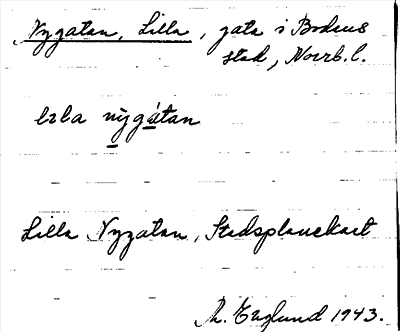 Nygatan, Lilla, gata i Bodens
stad, Norrb. l.
lɩla nỳgátan
Lilla Nygatan, Stadsplanekart
M. Englund 1943.